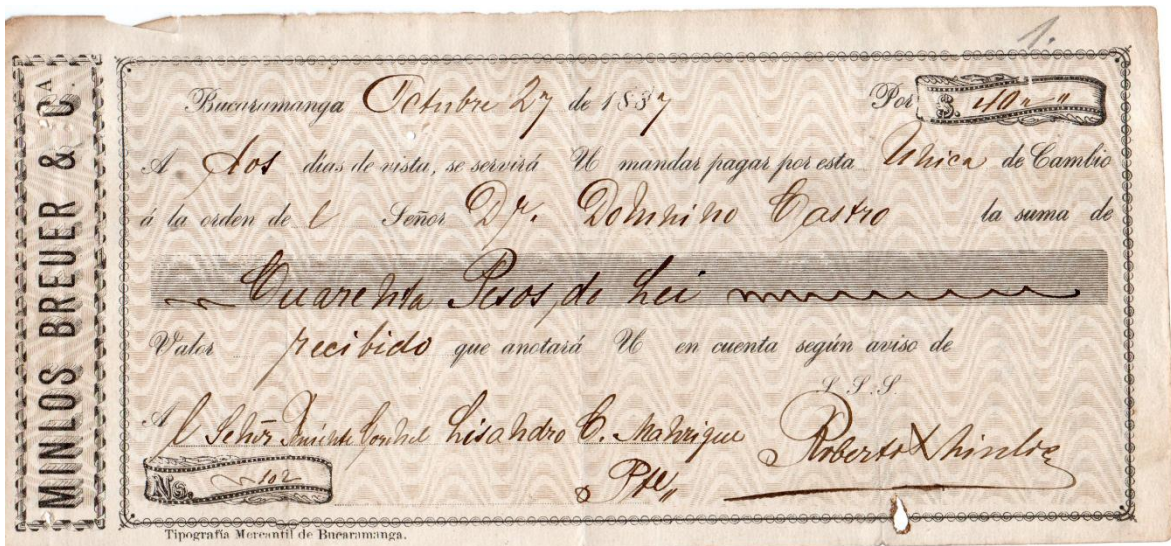 1.
MINLOS BREUER & Cª
Bucaramanga Octubre 27 de 1887 Por $. 40"—"
A dos dias de vista, se servirá U mandar pagar por esta Unica de Cambio
á la orden de l Señor Dr. Domnino Castro la suma de
Cuarenta Pesos de Lei
Valor recibido que anotará U en cuenta según aviso de
S. S. S.
A l Señor Teniente Coronel Lisandro C. Manrique Roberto Minlos
No. 102 Pte,,
Tipografía Mercantil de Bucaramanga.